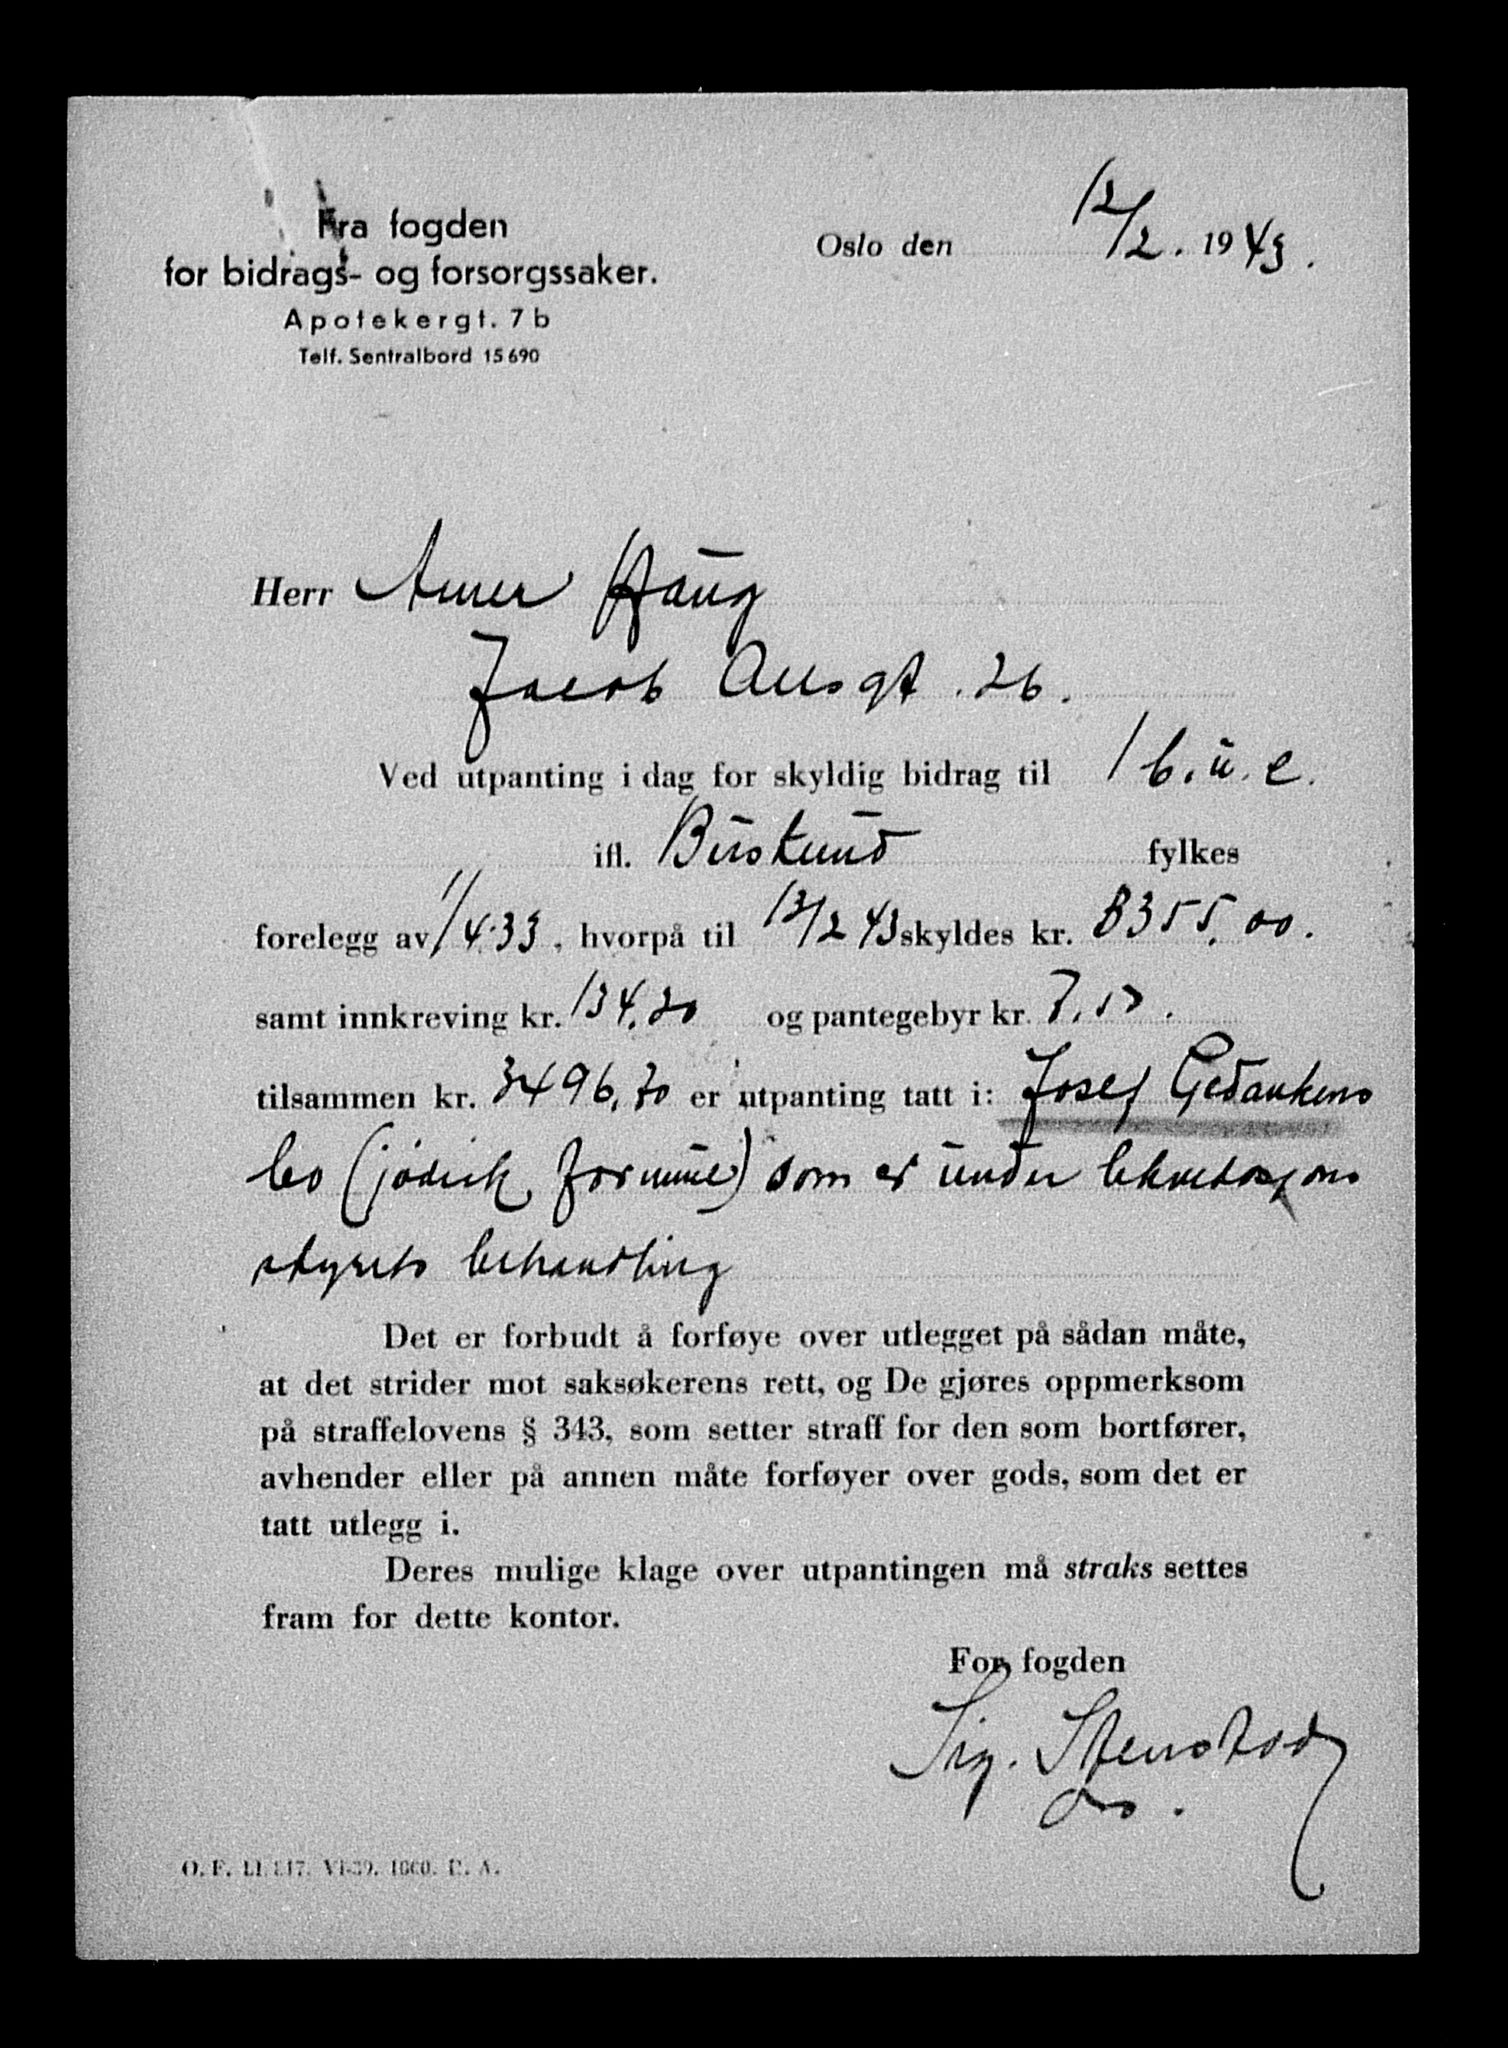 Fra fogden
for bidrags- og forsorgssaker.
Apotekergt. 7 b
Telf. Sentralbord 15690
Oslo den 12/2. 1943.
Herr Arner Haug
Jacob Allsgt. 26.
Ved utpanting i dag for skyldig bidrag til 1 b. u. e.
ifl. Buskerud fylkes
forelegg av 1/4.33, hvorpå til 12/2 43 skyldes kr. 3355,00.
samt innkreving kr. 134,20 og pantegebyr kr. 7,50.
tilsammen kr. 3496,70 er utpanting tatt i: Josef Gedankens
bo (jødisk formue) som er under likvidasjons
styrets behandling
Det er forbudt å forføye over utlegget på sådan måte,
at det strider mot saksøkerens rett, og De gjøres oppmerksom
på straffelovens § 343, som setter straff for den som bortfører,
avhender eller på annen måte forføyer over gods, som det er
tatt utlegg i.
Deres mulige klage over utpantingen må straks settes
fram for dette kontor.
For fogden
Sig. Stenstad
O. F. VI-39. 1000.